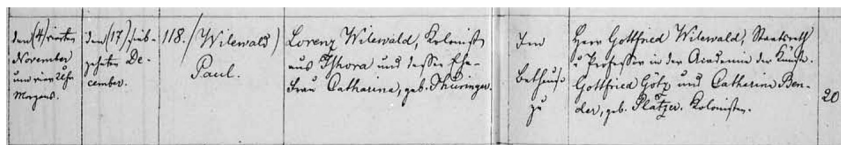 den (4) vierten
November
um vier Uhr
Morgens.
den (17) sieb-
zehnten De-
cember.
118. (Willewald)
Paul.
Lorenz Willewald, Kolonist
aus Ishora und dessen Ehe-
frau Catharina, geb. Thüringer.
Im
Bethause
zu
Herr Gottfried Willewald, Staatsrath
u. Professor in der Academie der Künste.
Gottfried Götz und Catharina Ben-
der, geb. Platzer. Kolonisten.
20